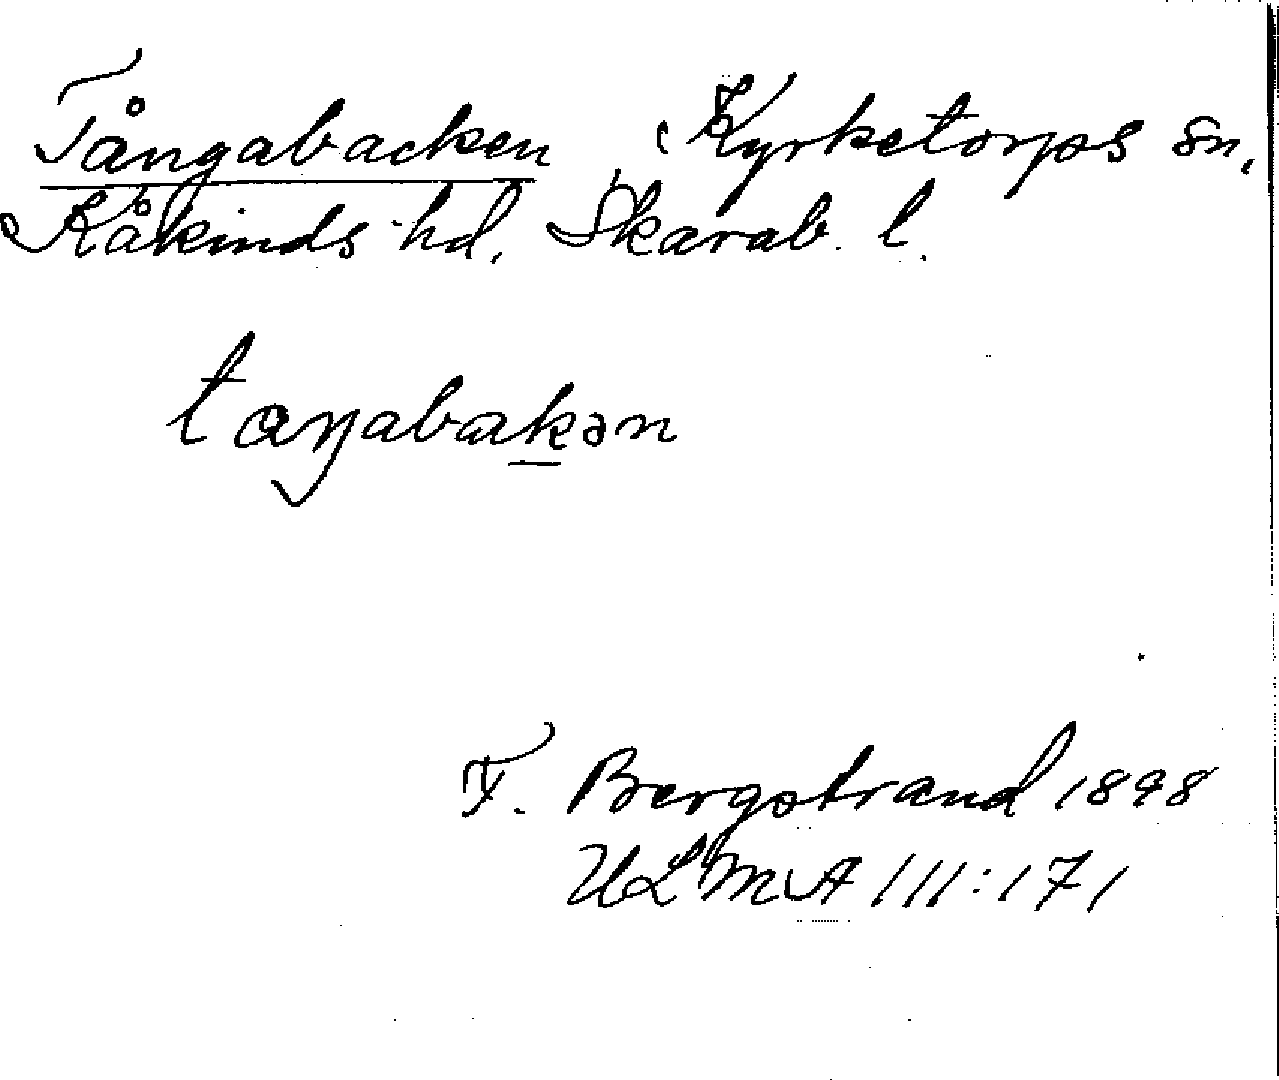 Tångabacken Kyrketorps sn.
Kåkinds hd. Skarab. l.
taŋabakən
F. Bergstrand 1898
ULMA 111:171